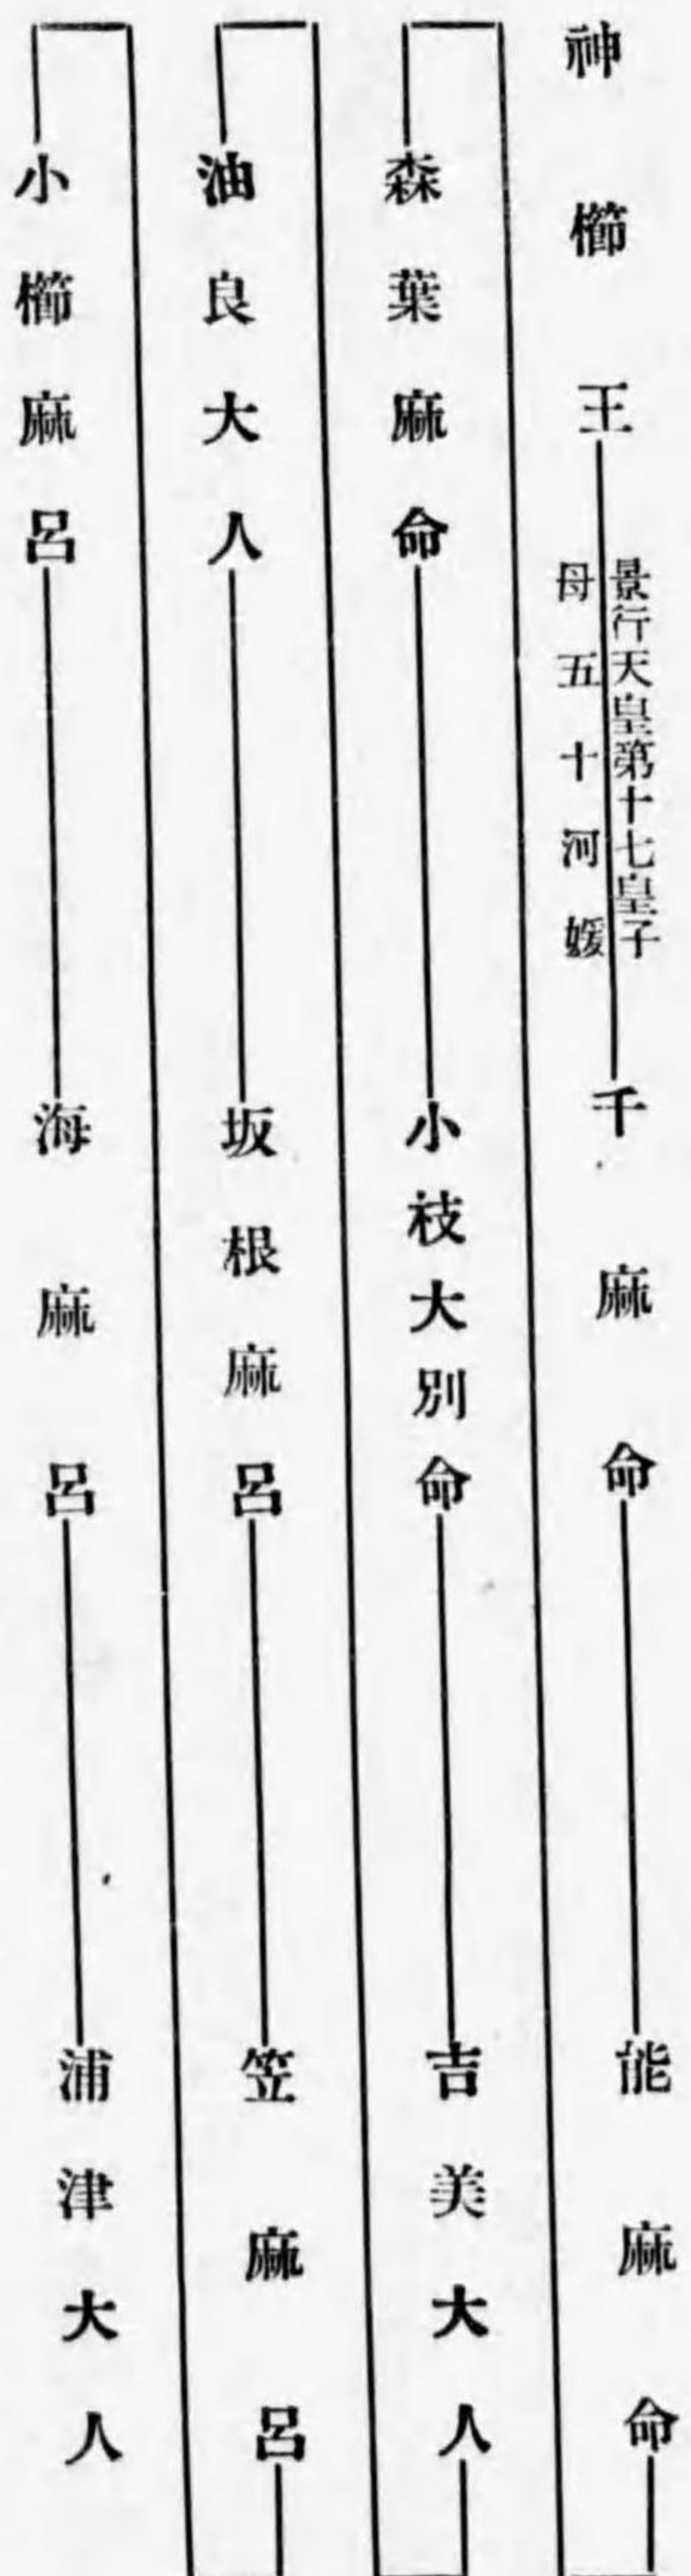 神櫛王
景行天皇第十七皇子
母五十河媛
千麻命
能麻命
森葉麻命
小枝大別命
吉美大人
油良大人
坂根麻呂
笠麻呂
小櫛麻呂
海麻呂
浦津大人